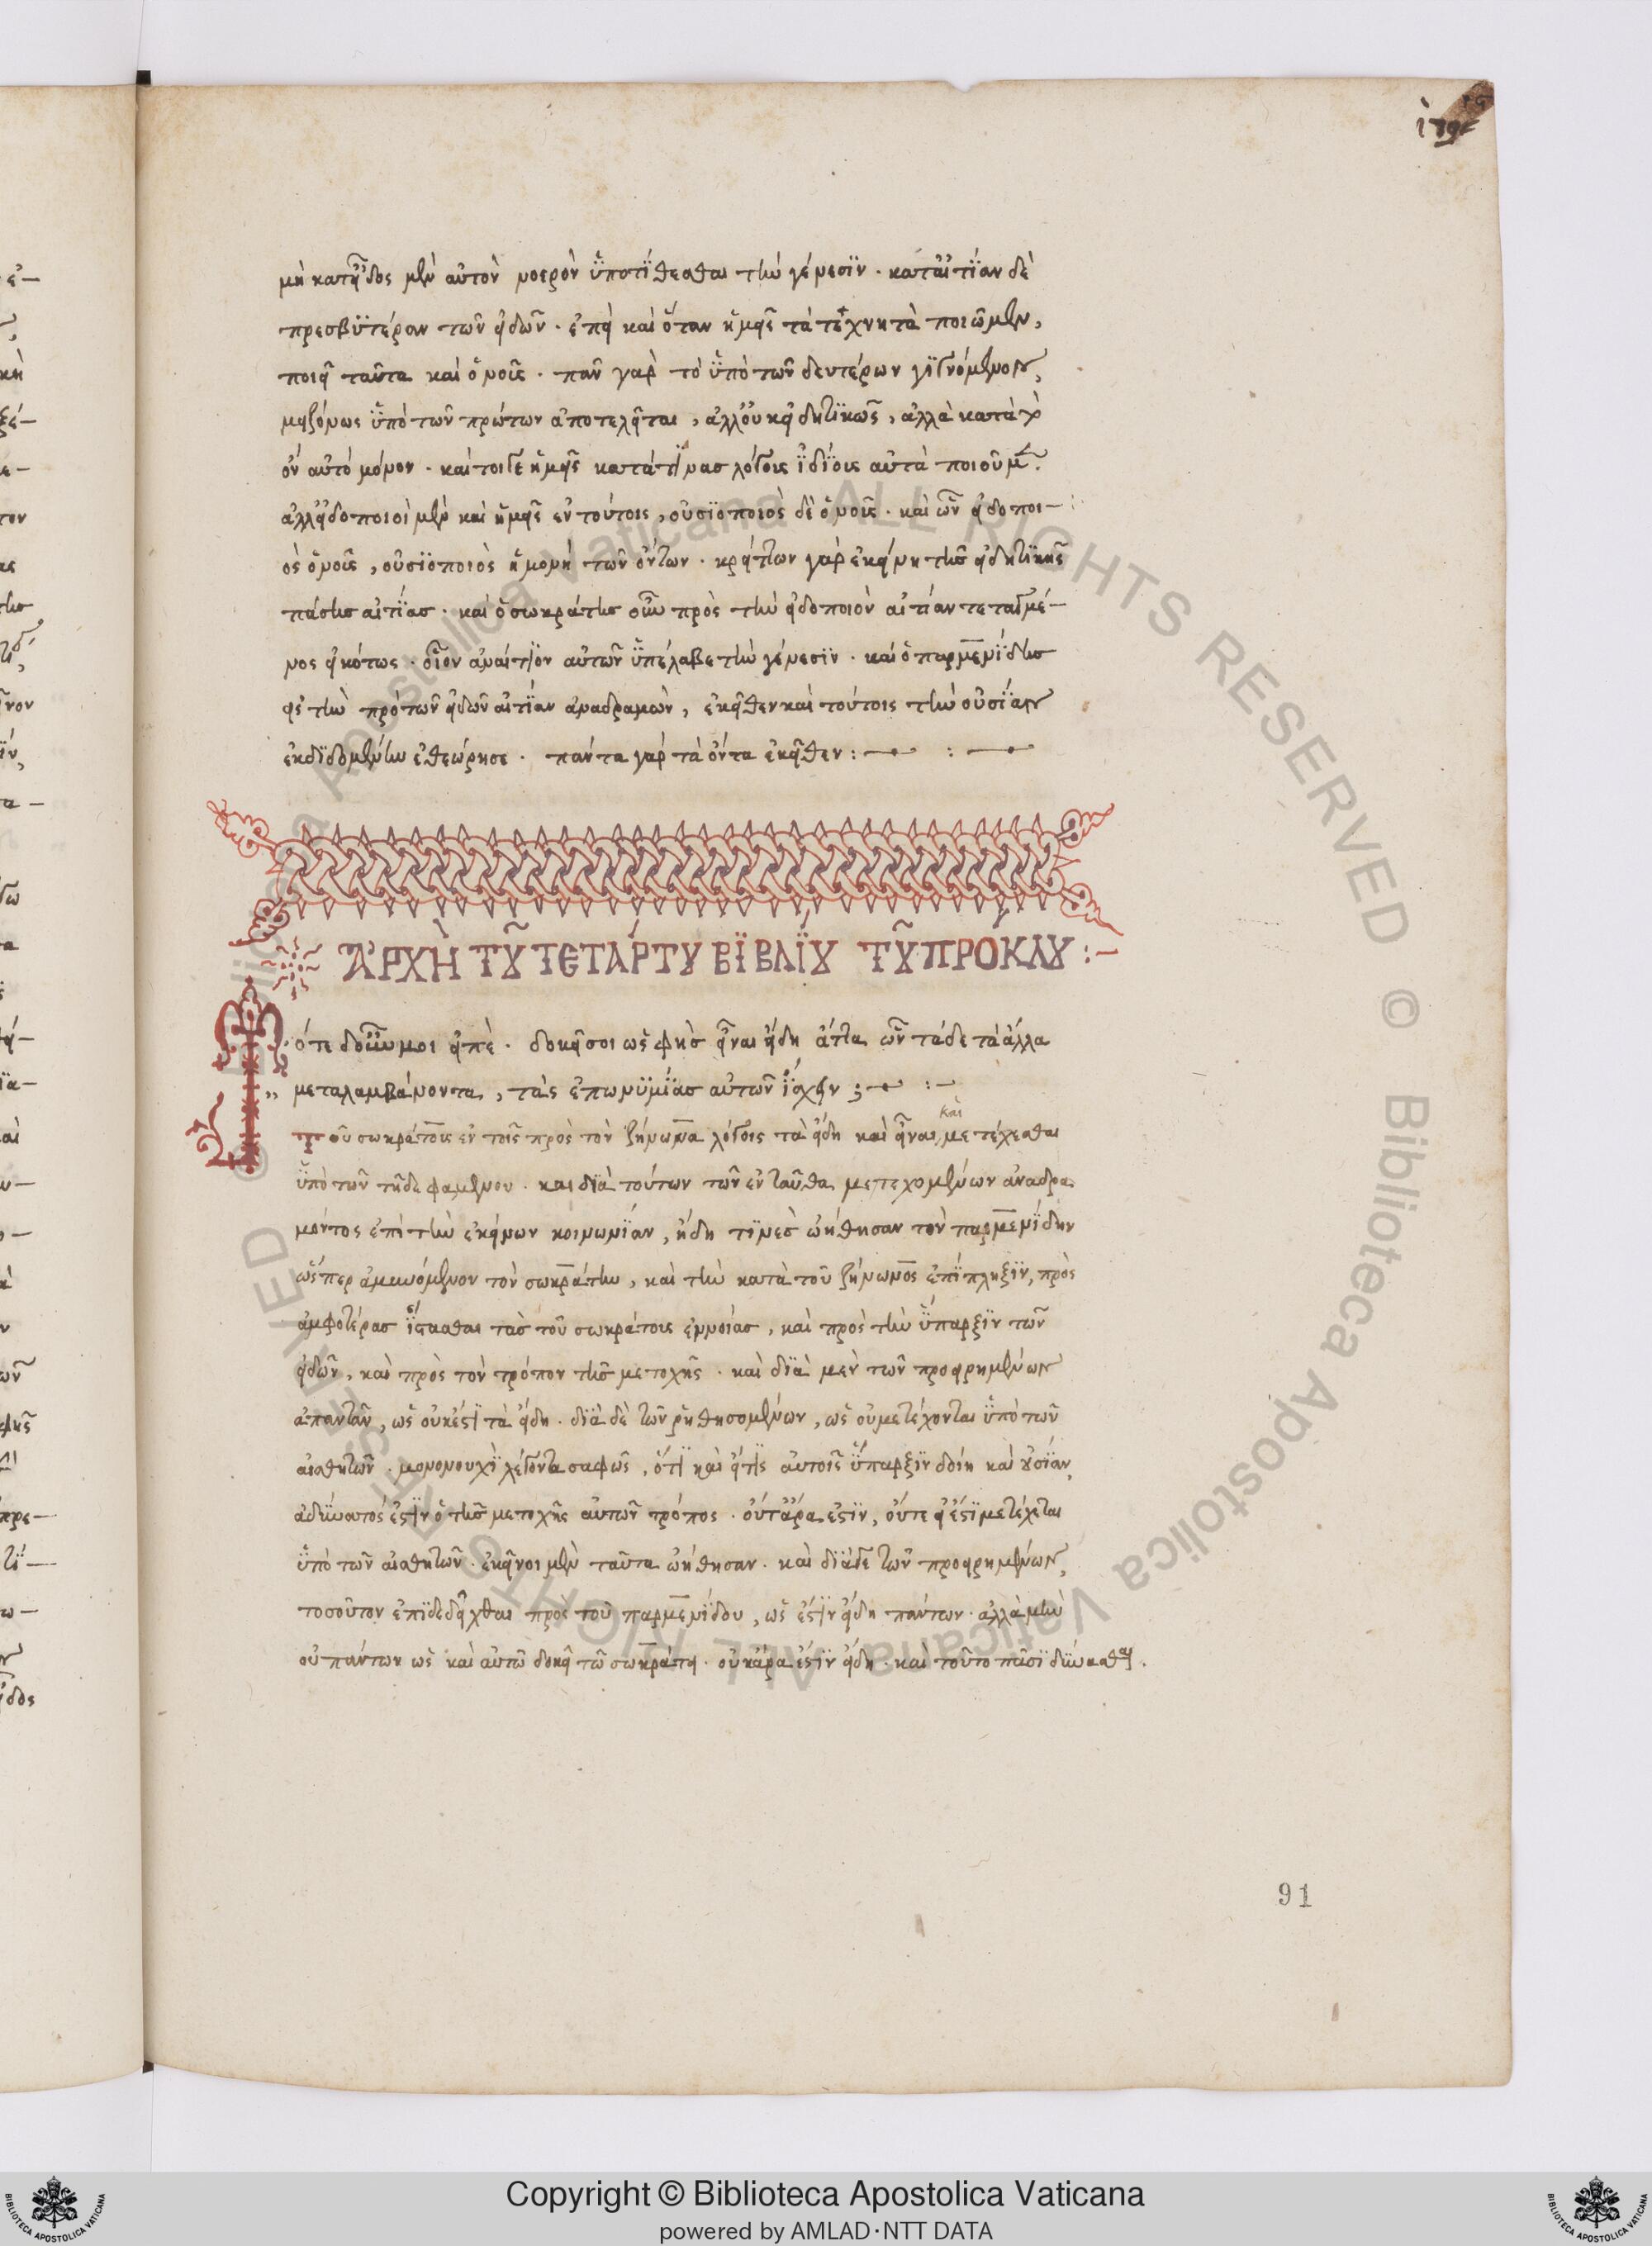 μὴ κατ' εἶδος μὲν αὐτὸν νοερὸν ὑποτίθεσθαι τὴν γένεσιν · κατ' αἰτίαν δὲ
πρεσβυτέραν τῶν εἰδῶν · ἐπεὶ καὶ ὅταν ἡμεῖς τὰ τεχνητὰ ποιῶμεν,
ποιεῖ ταῦτα καὶ ὁ νοῦς · πᾶν γὰρ τὸ ὑπὸ τῶν δευτέρων γιγνόμενον,
μειζόνως ὑπὸ τῶν πρώτων ἀποτελεῖται, ἀλλ' οὐκ εἰδητικῶς, ἀλλὰ κατὰ τὸ
ὂν αὐτὸ μόνον · καίτοιγε ἡμεῖς κατά τινας λόγους ἰδίους αὐτὰ ποιοῦμεν.
ἀλλ' εἰδοποιοὶ μὲν καὶ ἡμεῖς ἐν τούτοις, οὐσιοποιὸς δὲ ὁ νοῦς · καὶ ὧν εἰδοποι-
ὸς ὁ νοῦς, οὐσιοποιὸς ἡ μονὴ τῶν ὄντων · κρείττων γὰρ ἐκείνη τῆς εἰδητικῆς
πάσης αἰτίας · καὶ ὁ σωκράτης οὖν πρὸς τὴν εἰδοποιὸν αἰτίαν τεταγμέ-
νος εἰκότως · οἷον ἀναίτιον αὐτῶν ὑπέλαβε τὴν γένεσιν · καὶ ὁ παρμενίδης
εἰς τὴν πρὸ τῶν εἰδῶν αἰτίαν ἀναδραμὼν, ἐκεῖθεν καὶ τούτοις τὴν οὐσίαν
ἐκδιδομένην ἐθεώρησε · πάντα γὰρ τὰ ὄντα ἐκεῖθεν :— :—
ἈΡΧῊ ΤΟΥ͂ ΤΕΤΆΡΤΟΥ ΒΙΒΛΊΟΥ ΤΟΥ͂ ΠΡΌΚΛΟΥ :-
ότε δ' οὖν μοι εἰπέ · δοκεῖ σοι ὡς φὴς εἶναι εἴδη ἄττα ὧν τάδε τὰ ἄλλα
,, μεταλαμβάνοντα, τὰς ἐπωνυμίας αὐτῶν ἴσχειν ;— :—
Τοῦ σωκράτους ἐν τοῖς πρὸς τὸν ζήνωνα λόγοις τὰ εἴδη καὶ εἶναι καὶ μετέχεσθαι
ὑπὸ τῶν τῇδε φαμένου · καὶ διὰ τούτων τῶν ἐνταῦθα μετεχομένων ἀναδρα
μόντος ἐπὶ τὴν ἐκείνων κοινωνίαν, ἤδη τινὲς ᾠήθησαν τὸν παρμενίδην
ὥσπερ ἀμυνόμενον τὸν σωκράτην, καὶ τὴν κατὰ τοῦ ζήνωνος ἐπίπληξιν, πρὸς
ἀμφοτέρας ἵστασθαι τὰς τοῦ σωκράτους ἐννοίας, καὶ πρὸς τὴν ὕπαρξιν τῶν
εἰδῶν, καὶ πρὸς τὸν τρόπον τῆς μετοχῆς · καὶ διὰ μὲν τῶν προειρημένων
ἀπαντᾶν, ὡς οὐκ ἔστι τὰ εἴδη · διὰ δὲ τῶν ῥηθησομένων, ὡς οὐ μετέχονται ὑπὸ τῶν
αἰσθητῶν · μονονουχὶ λέγοντα σαφῶς, ὅτι καὶ εἴ τις αὐτοῖς ὕπαρξιν δοίη καὶ οὐσίαν,
ἀδύνατός ἐστιν ὁ τῆς μετοχῆς αὐτῶν τρόπος · οὔτ' ἄρα ἔστιν, οὔτε εἰ ἔστι μετέχεται
ὑπὸ τῶν αἰσθητῶν · ἐκεῖνοι μὲν ταῦτα ᾠήθησαν · καὶ διάγε τῶν προειρημένων,
τοσοῦτον ἐπιδεδεῖχθαι πρὸς τοῦ παρμενίδου, ὡς ἔστιν εἴδη πάντων · ἀλλὰ μὴν
οὐ πάντων ὡς καὶ αὐτῷ δοκεῖ τῷ σωκράτει · οὐκ ἄρα ἔστιν εἴδη · καὶ τοῦτο πᾶσι
91
Copyright © Biblioteca Apostolica Vaticana
powered by AMLAD·NTT DATA